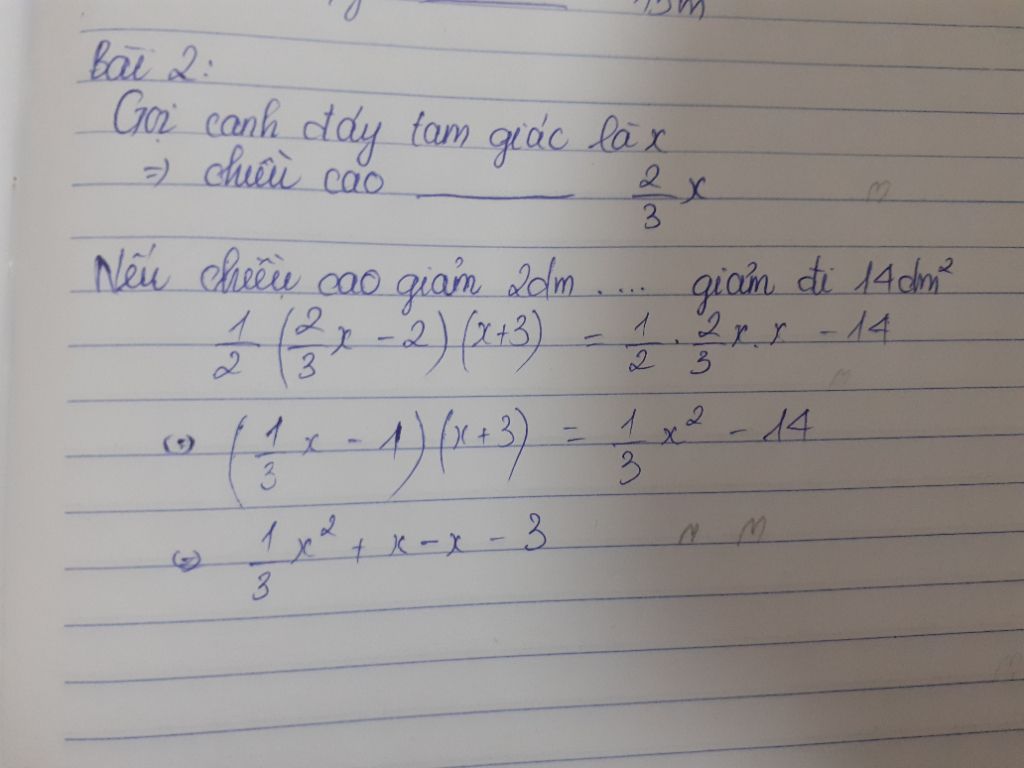 15m
Bài 2:
Gọi cạnh đáy tam giác là x
=> chiều cao ______ 2/3 x
Nếu chiều cao giảm 2dm .... giảm đi 14dm²
1/2 (2/3 x - 2)(x+3) = 1/2 . 2/3 x. x - 14
(=) (1/3 x - 1)(x+3) = 1/3 x² - 14
(=) 1/3 x² + x - x - 3